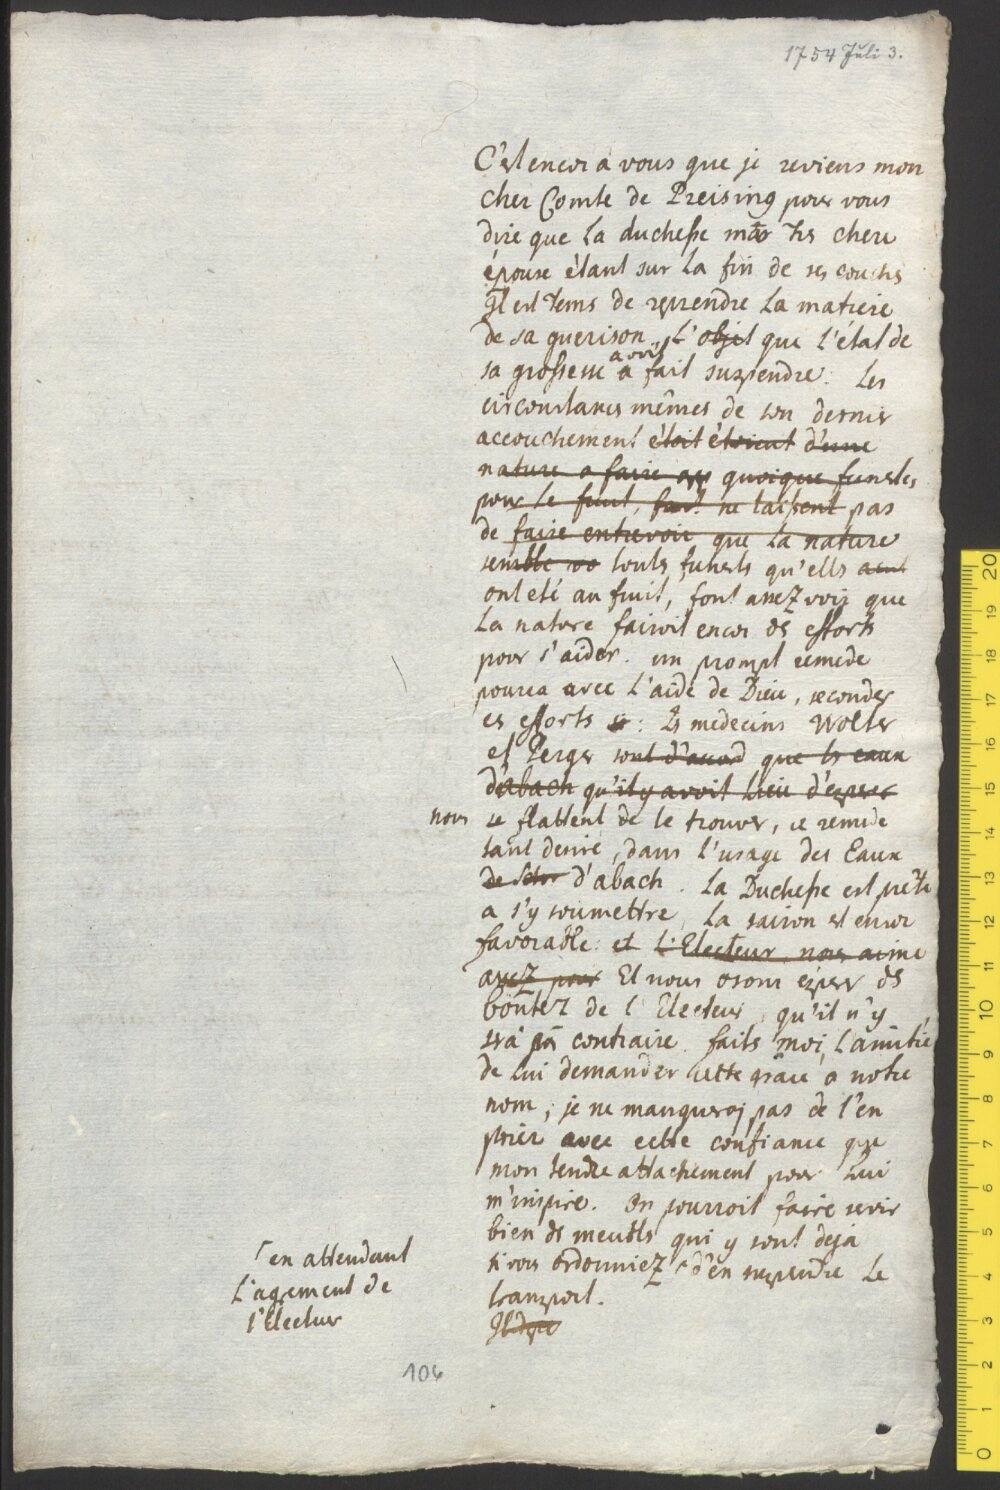 1754 Juli 3.
C'est encor a vous que je reviens mon
cher Comte de Preising pour vous
dire que la duchesse ma tres chere
épouse étant sur la fin de ses couches
Il est tems de reprendre la matiere
de sa guerison, L'objet que l'état de
avoit
sa grossesse a fait suspendre. Les
circonstances mêmes de son dernier
accouchement étoit étoient d'une
nature a faire quoique funestes
pour le fruit, ne laissent pas
de faire entrevoir que la nature
semble toutes funestes qu'elles
ont eté au fruit, font assez voir que
la nature faisoit encor des efforts
pour s'aider. un prompt remede
pourra avec l'aide de Dieu, seconder
ces efforts : Les medecins Wolter
et Perger sont d'accord que les eaux
d'abach qu'il y avoit lieu d'esperer
nous se flattent de le trouver, ce remede
tant desiré, dans l'usage des Eaux
de d'abach. La Duchesse est prête
a s'y soumettre, la saison est encor
favorable: et L'Electeur nous aime
assez pour Et nous osons esperer des
bontez de l'Electeur, qu'il n'y
sera pas contraire. faites moi l'amitié
de lui demander cette grace a notre
nom, je ne manquerai pas de l'en
prier avec cette confiance que
mon tendre attachement pour Lui
m'inspire. On pourroit faire servir
bien des meubles qui y sont deja
si vous ordonniez d'en suspendre le
transport.
en attendant
L'agrement de
l'Electeur
106